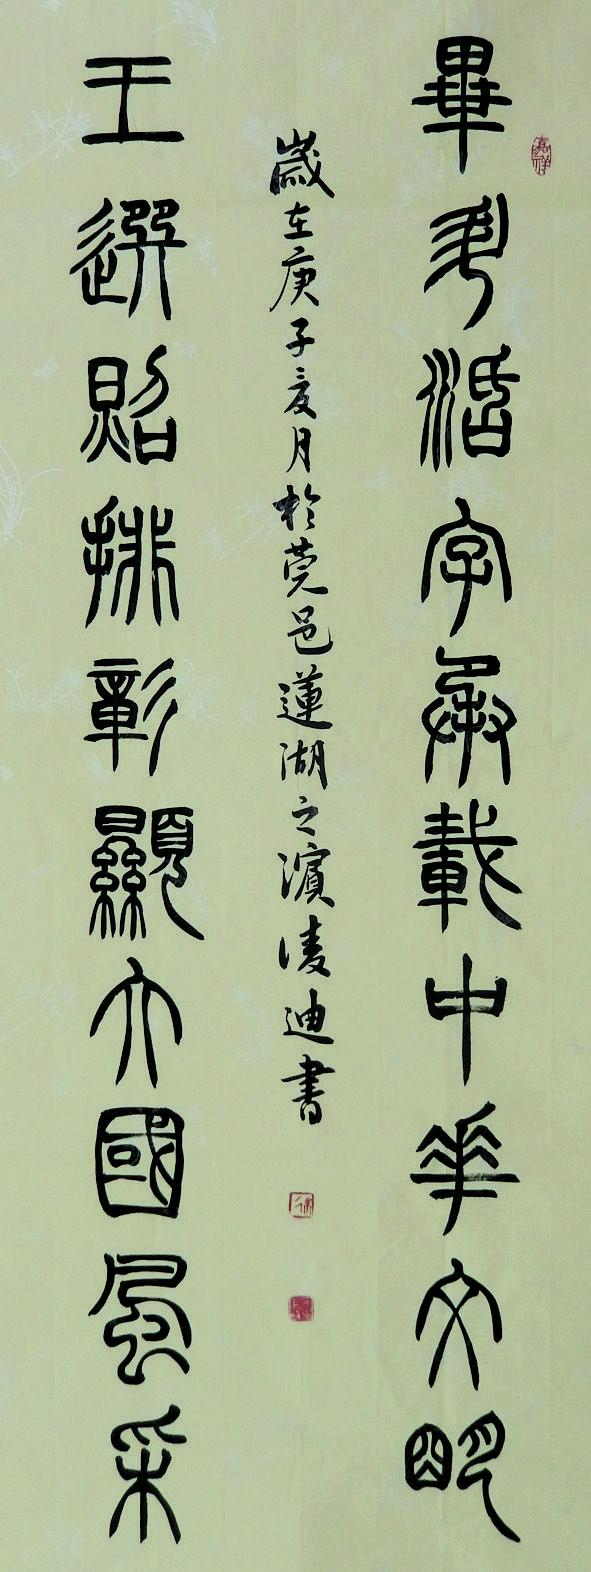 嘉祥
畢升活字承載中華文明
王選照排彰顯大國風采
歲在庚子夏月於莞邑蓮湖之濱凌迪書